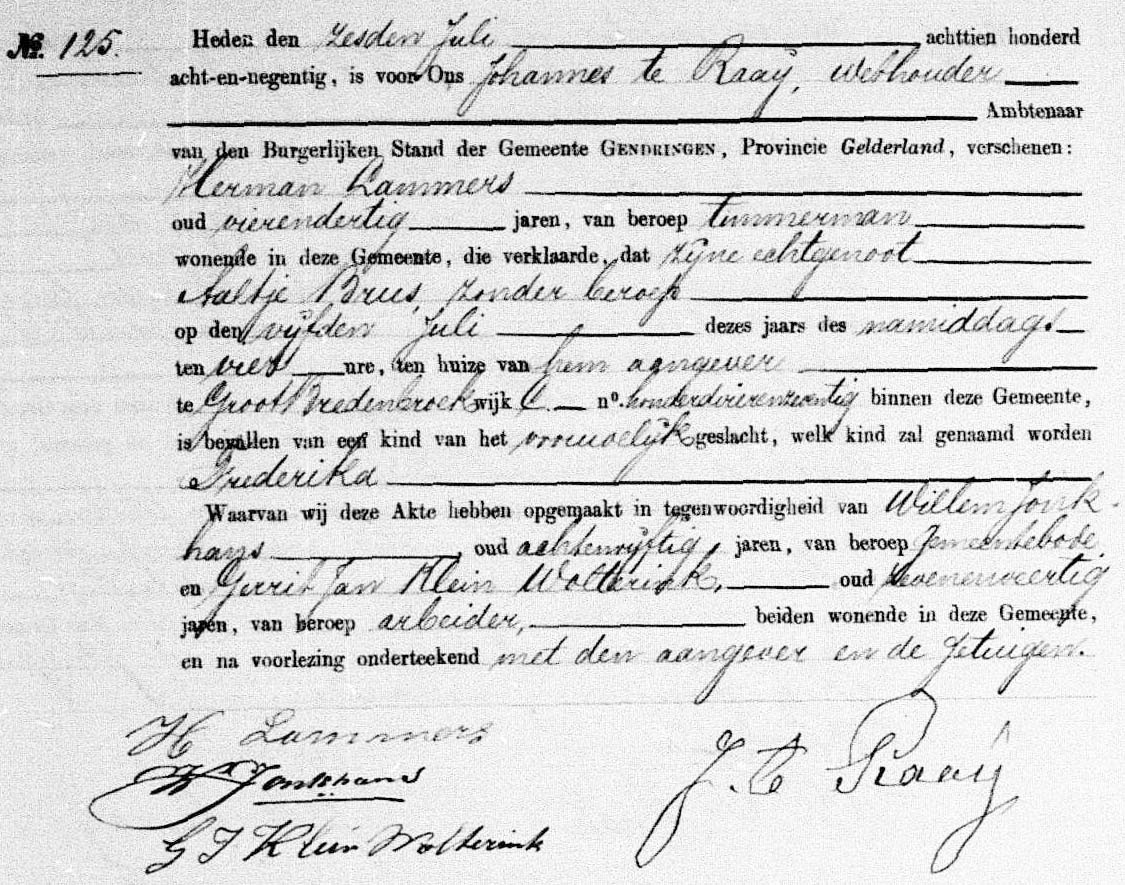 No. 125.
Heden den zesden Juli achttien honderd
acht-en-negentig, is voor Ons Johannes te Raaij, Wethouder
Ambtenaar
van den Burgerlijken Stand der Gemeente GENDRINGEN, Provincie Gelderland, verschenen:
Herman Lammers
oud vierendertig jaren, van beroep timmerman
wonende in deze Gemeente, die verklaarde, dat zijne echtgenoot
Aaltje Brus, zonder beroep
op den vijfden Juli dezes jaars des namiddags
ten vier ure, ten huize van hem aangever
te Groot Bredenbroek wijk C no. honderdvierentwintig binnen deze Gemeente,
is bevallen van een kind van het vrouwelijk geslacht, welk kind zal genaamd worden
Frederika
Waarvan wij deze Akte hebben opgemaakt in tegenwoordigheid van Willem Jonk-
hans, oud achtenvijftig, jaren, van beroep gemeentebode,
en Gerrit Jan Klein Wolterink, oud zevenenveertig
jaren, van beroep arbeider, beiden wonende in deze Gemeente,
en na voorlezing onderteekend met den aangever en de getuigen.
H Lammers
W Jonkhans
J. t Raaij
G J Klein Wolterink